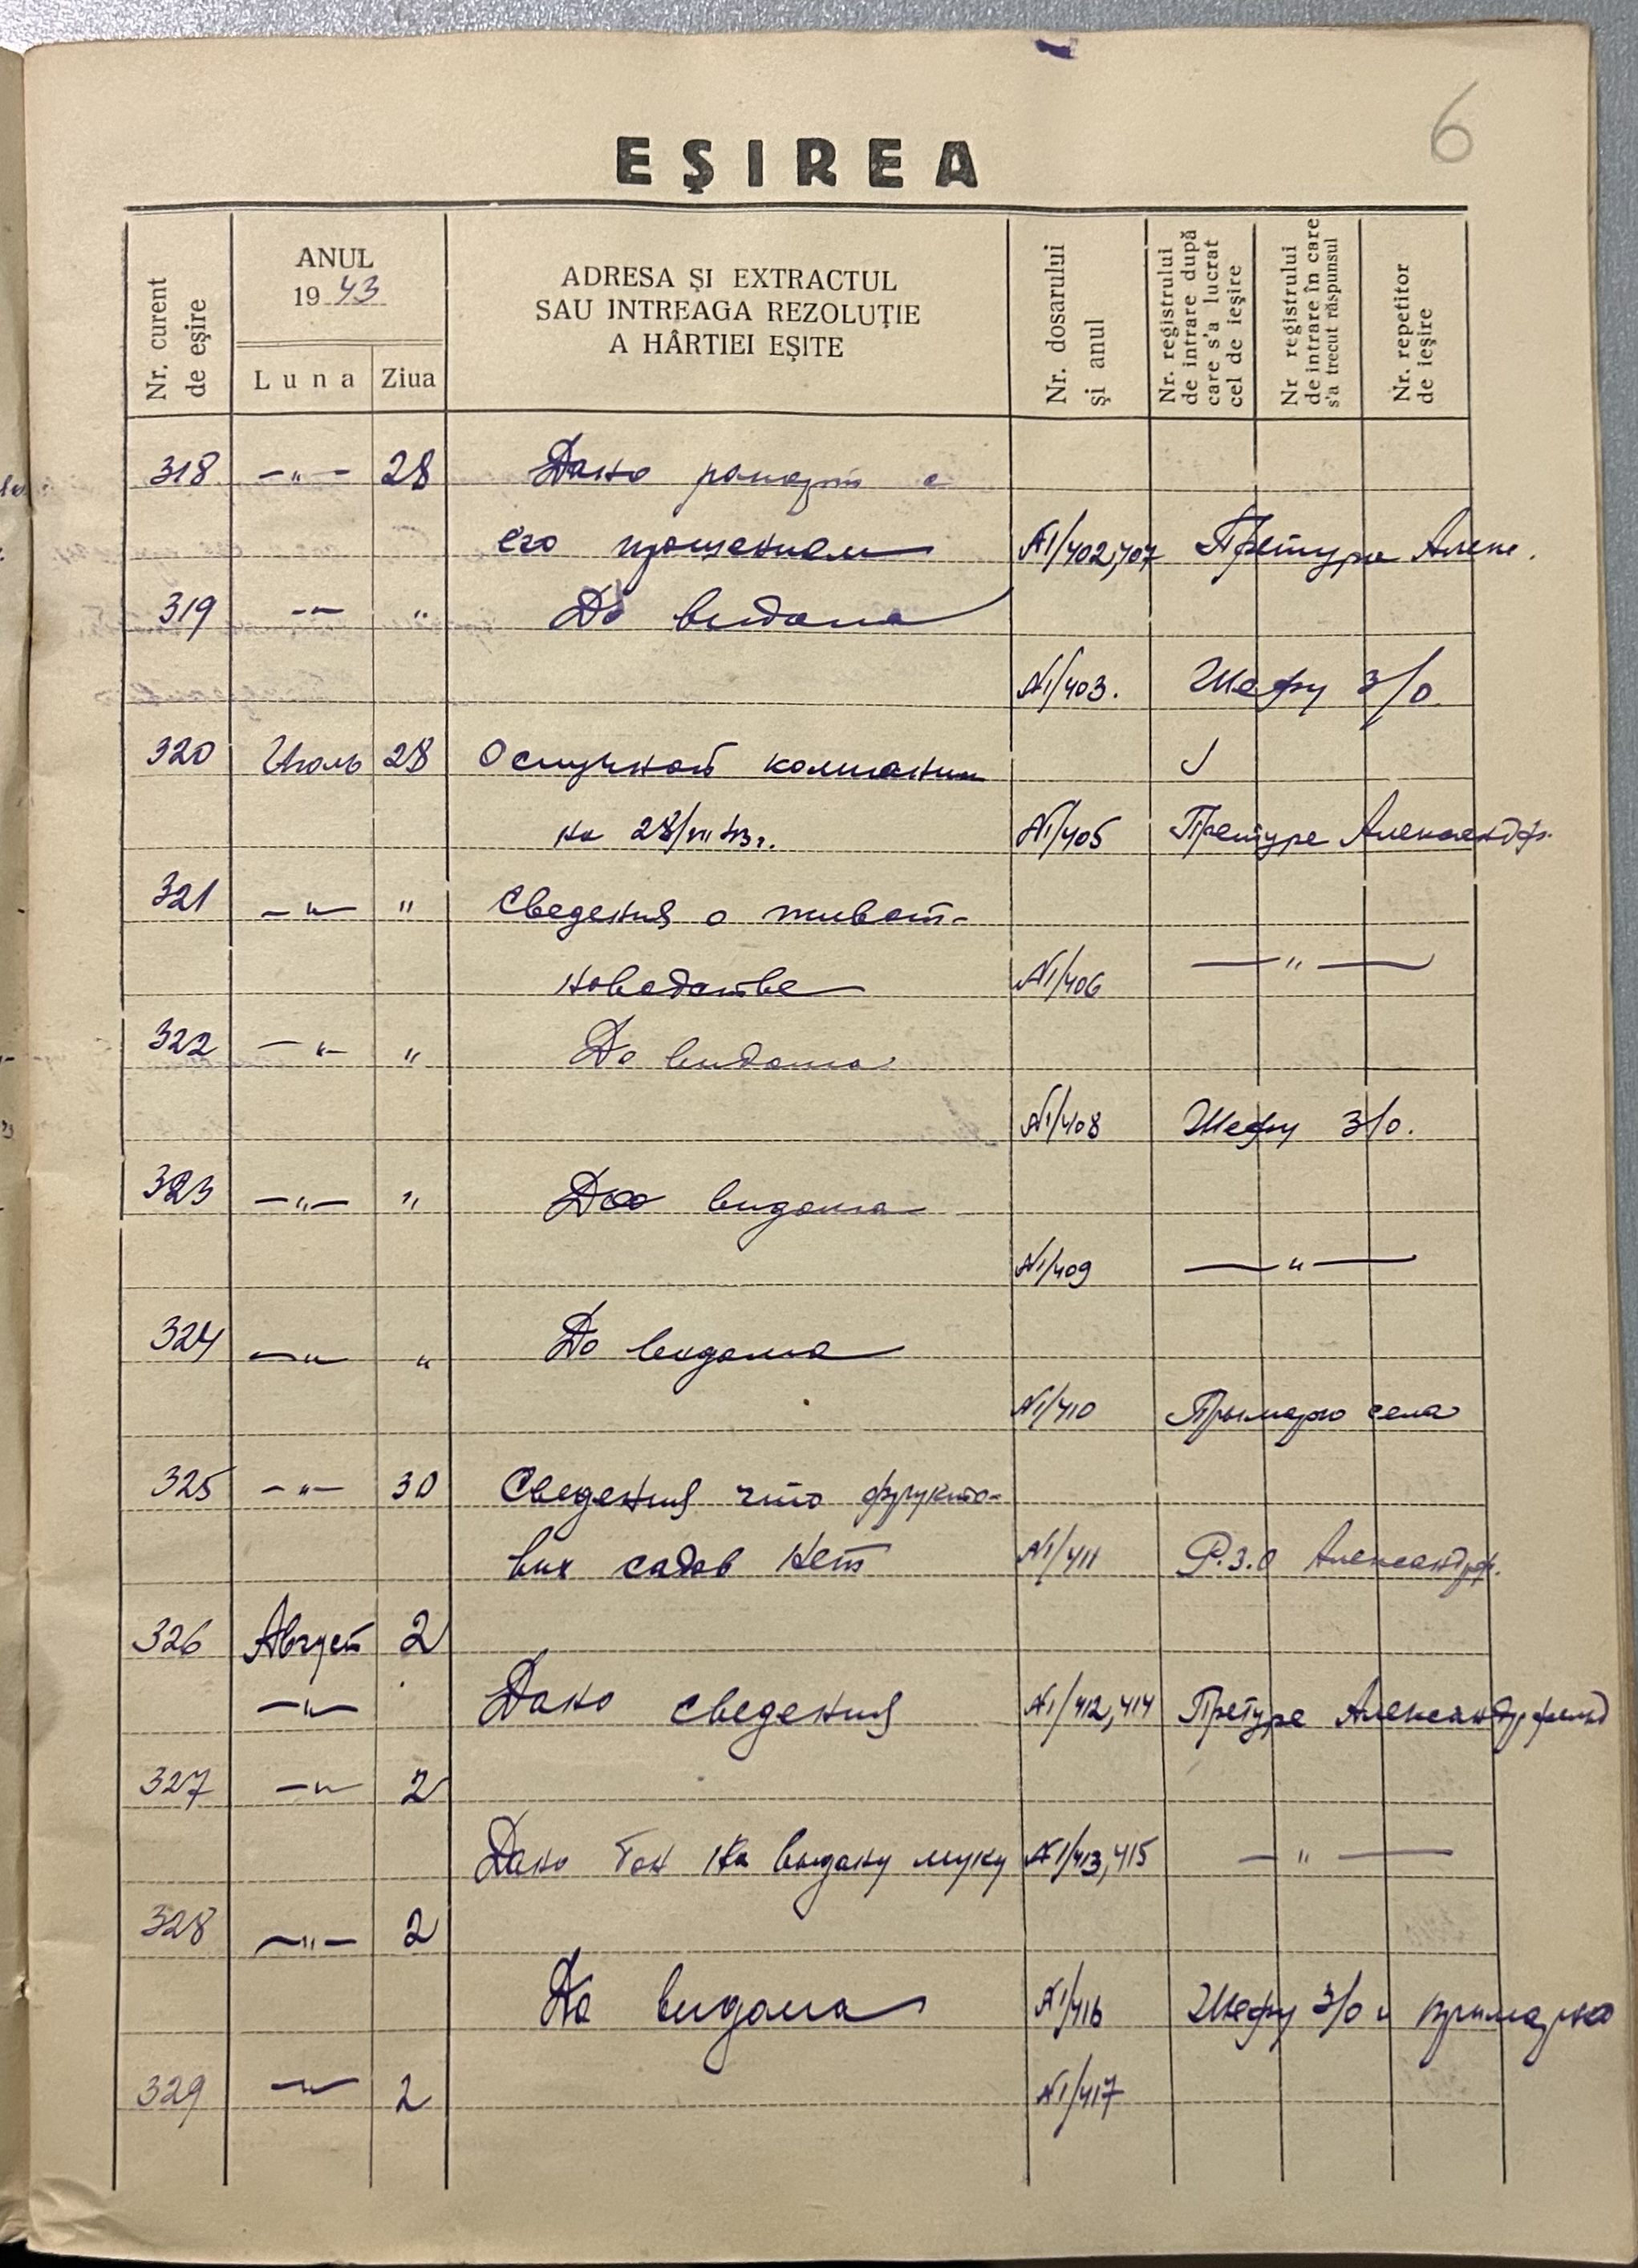 6
EŞIREA
Nr. curent de eşire
ANUL
1943
Luna
Ziua
ADRESA ŞI EXTRACTUL
SAU INTREAGA REZOLUŢIE
A HÂRTIEI EŞITE
Nr. dosarului
şi anul
Nr. registrului
de intrare după
care s'a lucrat
cel de ieşire
Nr registrului
de intrare în care
s'a trecut răspunsul
Nr. repetitor
de ieşire
318 —„— 28 Дано рапорт с
его прошением №1/402,407 Претура Алекс.
319 —„— „ До видома
№1/403. Шефу З/О.
320 Июль 28 О случной компании
на 28/VII 43 г. №1/405 Претуре Александр.
321 —„— „ Сведения о живот-
новодстве №1/406 —„—
322 —„— „ До видома
№1/408 Шефу З/О.
323 —„— „ До видома
№1/409 —„—
324 —„— „ До видома
№1/410 Примарю села
325 —„— 30 Сведения что фрукто-
вих садов нет №1/411 Р.З.О Александрф.
326 Август 2
—„— Дано сведения №1/412,414 Претуре Александрфельд
327 —„— 2
Дано бон на выдачу муку №1/413,415 —„—
328 —„— 2
До видома №1/416 Шефу З/О и примарю
329 —„— 2 №1/417